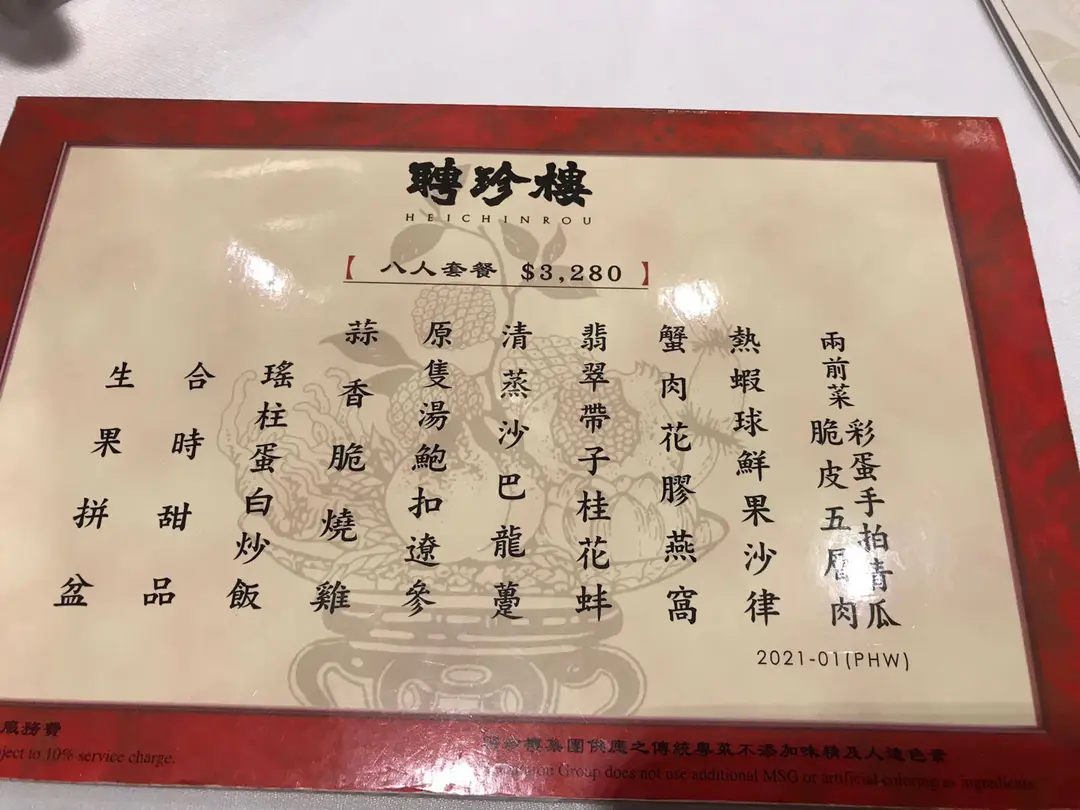 聘珍樓
HEICHINROU
【 八人套餐 $3,280 】
兩前菜
彩蛋手拍青瓜
脆皮五層肉
熱蝦球鮮果沙律
蟹肉花膠燕窩
翡翠帶子桂花蚌
清蒸沙巴龍躉
原隻湯鮑扣遼參
蒜香脆燒雞
瑤柱蛋白炒飯
合時甜品
生果拼盆
2021-01(PHW)
服務費
ject to 10% service charge.
聘珍樓集團供應之傳統粵菜不添加味精及人造色素
Group does not use additional MSG or artificial coloring as ingredients.